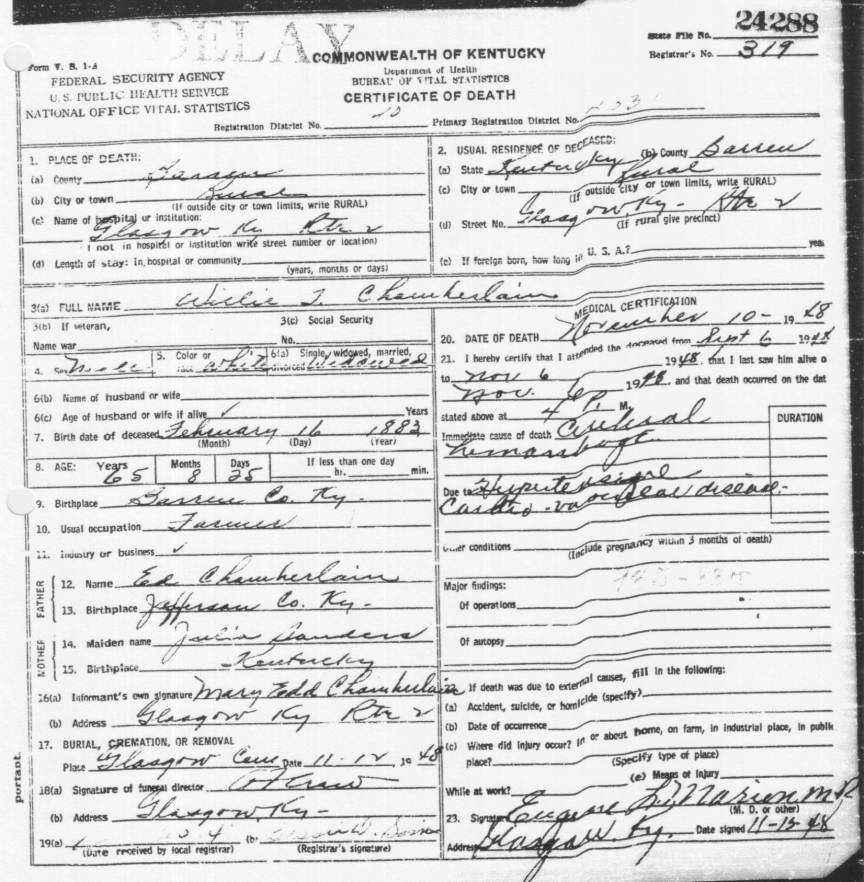 DELAY
24288
State File No.
Registrar's No. 319
Form V. S. 1-A
FEDERAL SECURITY AGENCY
U. S. PUBLIC HEALTH SERVICE
NATIONAL OFFICE VITAL STATISTICS
COMMONWEALTH OF KENTUCKY
Department of Health
BUREAU OF VITAL STATISTICS
CERTIFICATE OF DEATH
Registration District No. Primary Registration District No.
1. PLACE OF DEATH:
(a) County Barren
(b) City or town Rural
(If outside city or town limits, write RURAL)
(c) Name of hospital or institution:
Glasgow Ky Rte. 2
If not in hospital or institution write street number or location)
(d) Length of stay: In hospital or community
(years, months or days)
2. USUAL RESIDENCE OF DECEASED:
(a) State Kentucky (b) County Barren
(c) City or town Rural
(If outside city or town limits, write RURAL)
(d) Street No. Glasgow, Ky - Rte 2
(If rural give precinct)
(e) If foreign born, how long in U. S. A.? yea
3(a) FULL NAME Willie T. Chamberlain
3(b) If veteran,
Name war
3(c) Social Security
No.
4. Sex Male
5. Color or
race White
6(a) Single, widowed, married,
divorced Widowed
6(b) Name of husband or wife
6(c) Age of husband or wife if alive ✓ Years
7. Birth date of deceased February 16 1883
(Month) (Day) (Year)
8. AGE: Years Months Days If less than one day
65 8 25 hr. min.
9. Birthplace Barren Co. Ky.
10. Usual occupation Farmer
11. Industry or business ✓
FATHER
12. Name Ed Chamberlain
13. Birthplace Jefferson Co. Ky -
MOTHER
14. Maiden name Julia Sanders
15. Birthplace Kentucky
16(a) Informant's own signature Mary Edd Chamberlain
(b) Address Glasgow Ky Rte 2
17. BURIAL, CREMATION, OR REMOVAL
Place Glasgow Cem Date 11-12, 1948
18(a) Signature of funeral director
(b) Address Glasgow, Ky -
19(a) (b)
(Date received by local registrar) (Registrar's signature)
portant.
MEDICAL CERTIFICATION
20. DATE OF DEATH November 10- 1948
21. I hereby certify that I attended the deceased from Sept 6 1948
to Nov 6 1948, that I last saw him alive o
Nov. 1948, and that death occurred on the dat
stated above at 4 P. M.
Immediate cause of death Cerebral
hemorrhage
DURATION
Due to Hypertensive
Cardio-vascular disease-
Other conditions
(Include pregnancy within 3 months of death)
Major findings:
Of operations
Of autopsy
22. If death was due to external causes, fill in the following:
(a) Accident, suicide, or homicide (specify)
(b) Date of occurrence
(c) Where did injury occur? in or about home, on farm, in industrial place, in public
place?
(Specify type of place)
While at work? (e) Means of injury
23. Signature Eugene L. Marion M.D.
(M. D. or other)
Address Glasgow Ky. Date signed 11-15-48